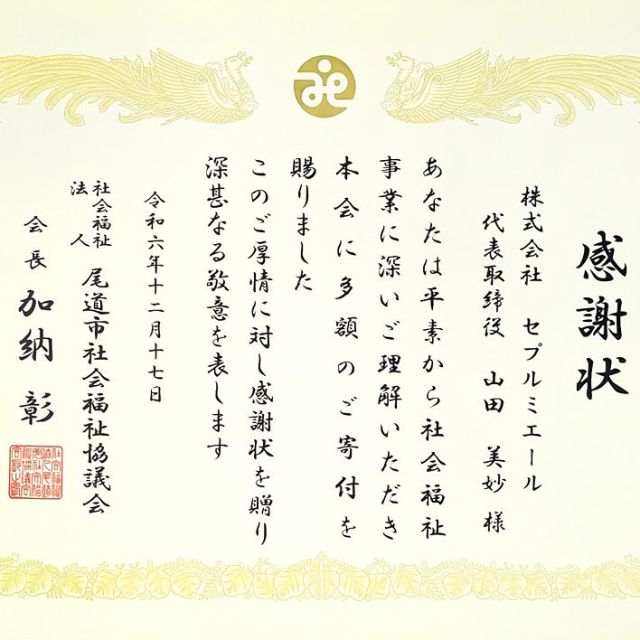 感謝状
株式会社 セプルミエール
代表取締役 山田 美妙 様
あなたは平素から社会福祉
事業に深いご理解いただき
本会に多額のご寄付を
賜りました
このご厚情に対し感謝状を贈り
深甚なる敬意を表します
令和六年十二月十七日
社会福祉
法人
尾道市社会福祉協議会
会長 加納 彰